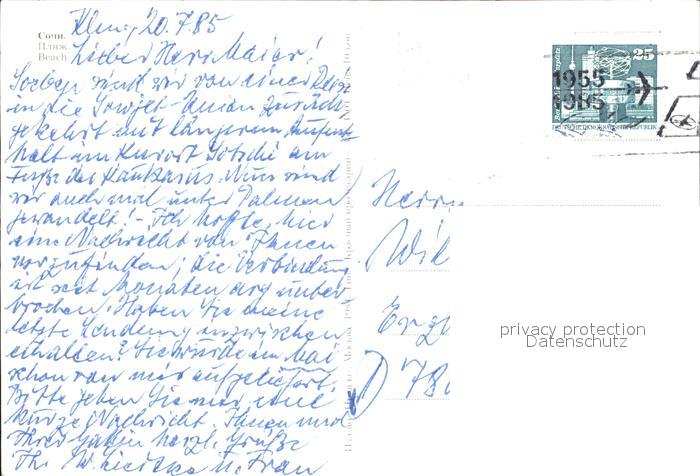 20.7.85
Сочи.
Пляж.
Beach.
Lieber Herr Maier!
Soeben sind wir von einer Reise
in die Sowjet-Union zurück-
gekehrt mit längerem Aufent-
halt im Kurort Sotschi am
Fuße des Kaukasus. Nun sind
wir auch mal unter Palmen
gewandelt! - Ich hoffe, hier
eine Nachricht von Ihnen
vorzufinden; die Verbindung
ist seit Monaten arg unter-
brochen. Haben Sie meine
letzte Sendung inzwischen
erhalten? Sie wurde im Mai
schon von mir aufgeliefert.
Bitte geben Sie mir eine
kurze Nachricht. Ihnen und
Ihrer Gattin herzl. Grüße
Ihr W. u. Frau
25
1955
1985
DEUTSCHE DEMOKRATISCHE REPUBLIK
Herrn
privacy protection
Datenschutz